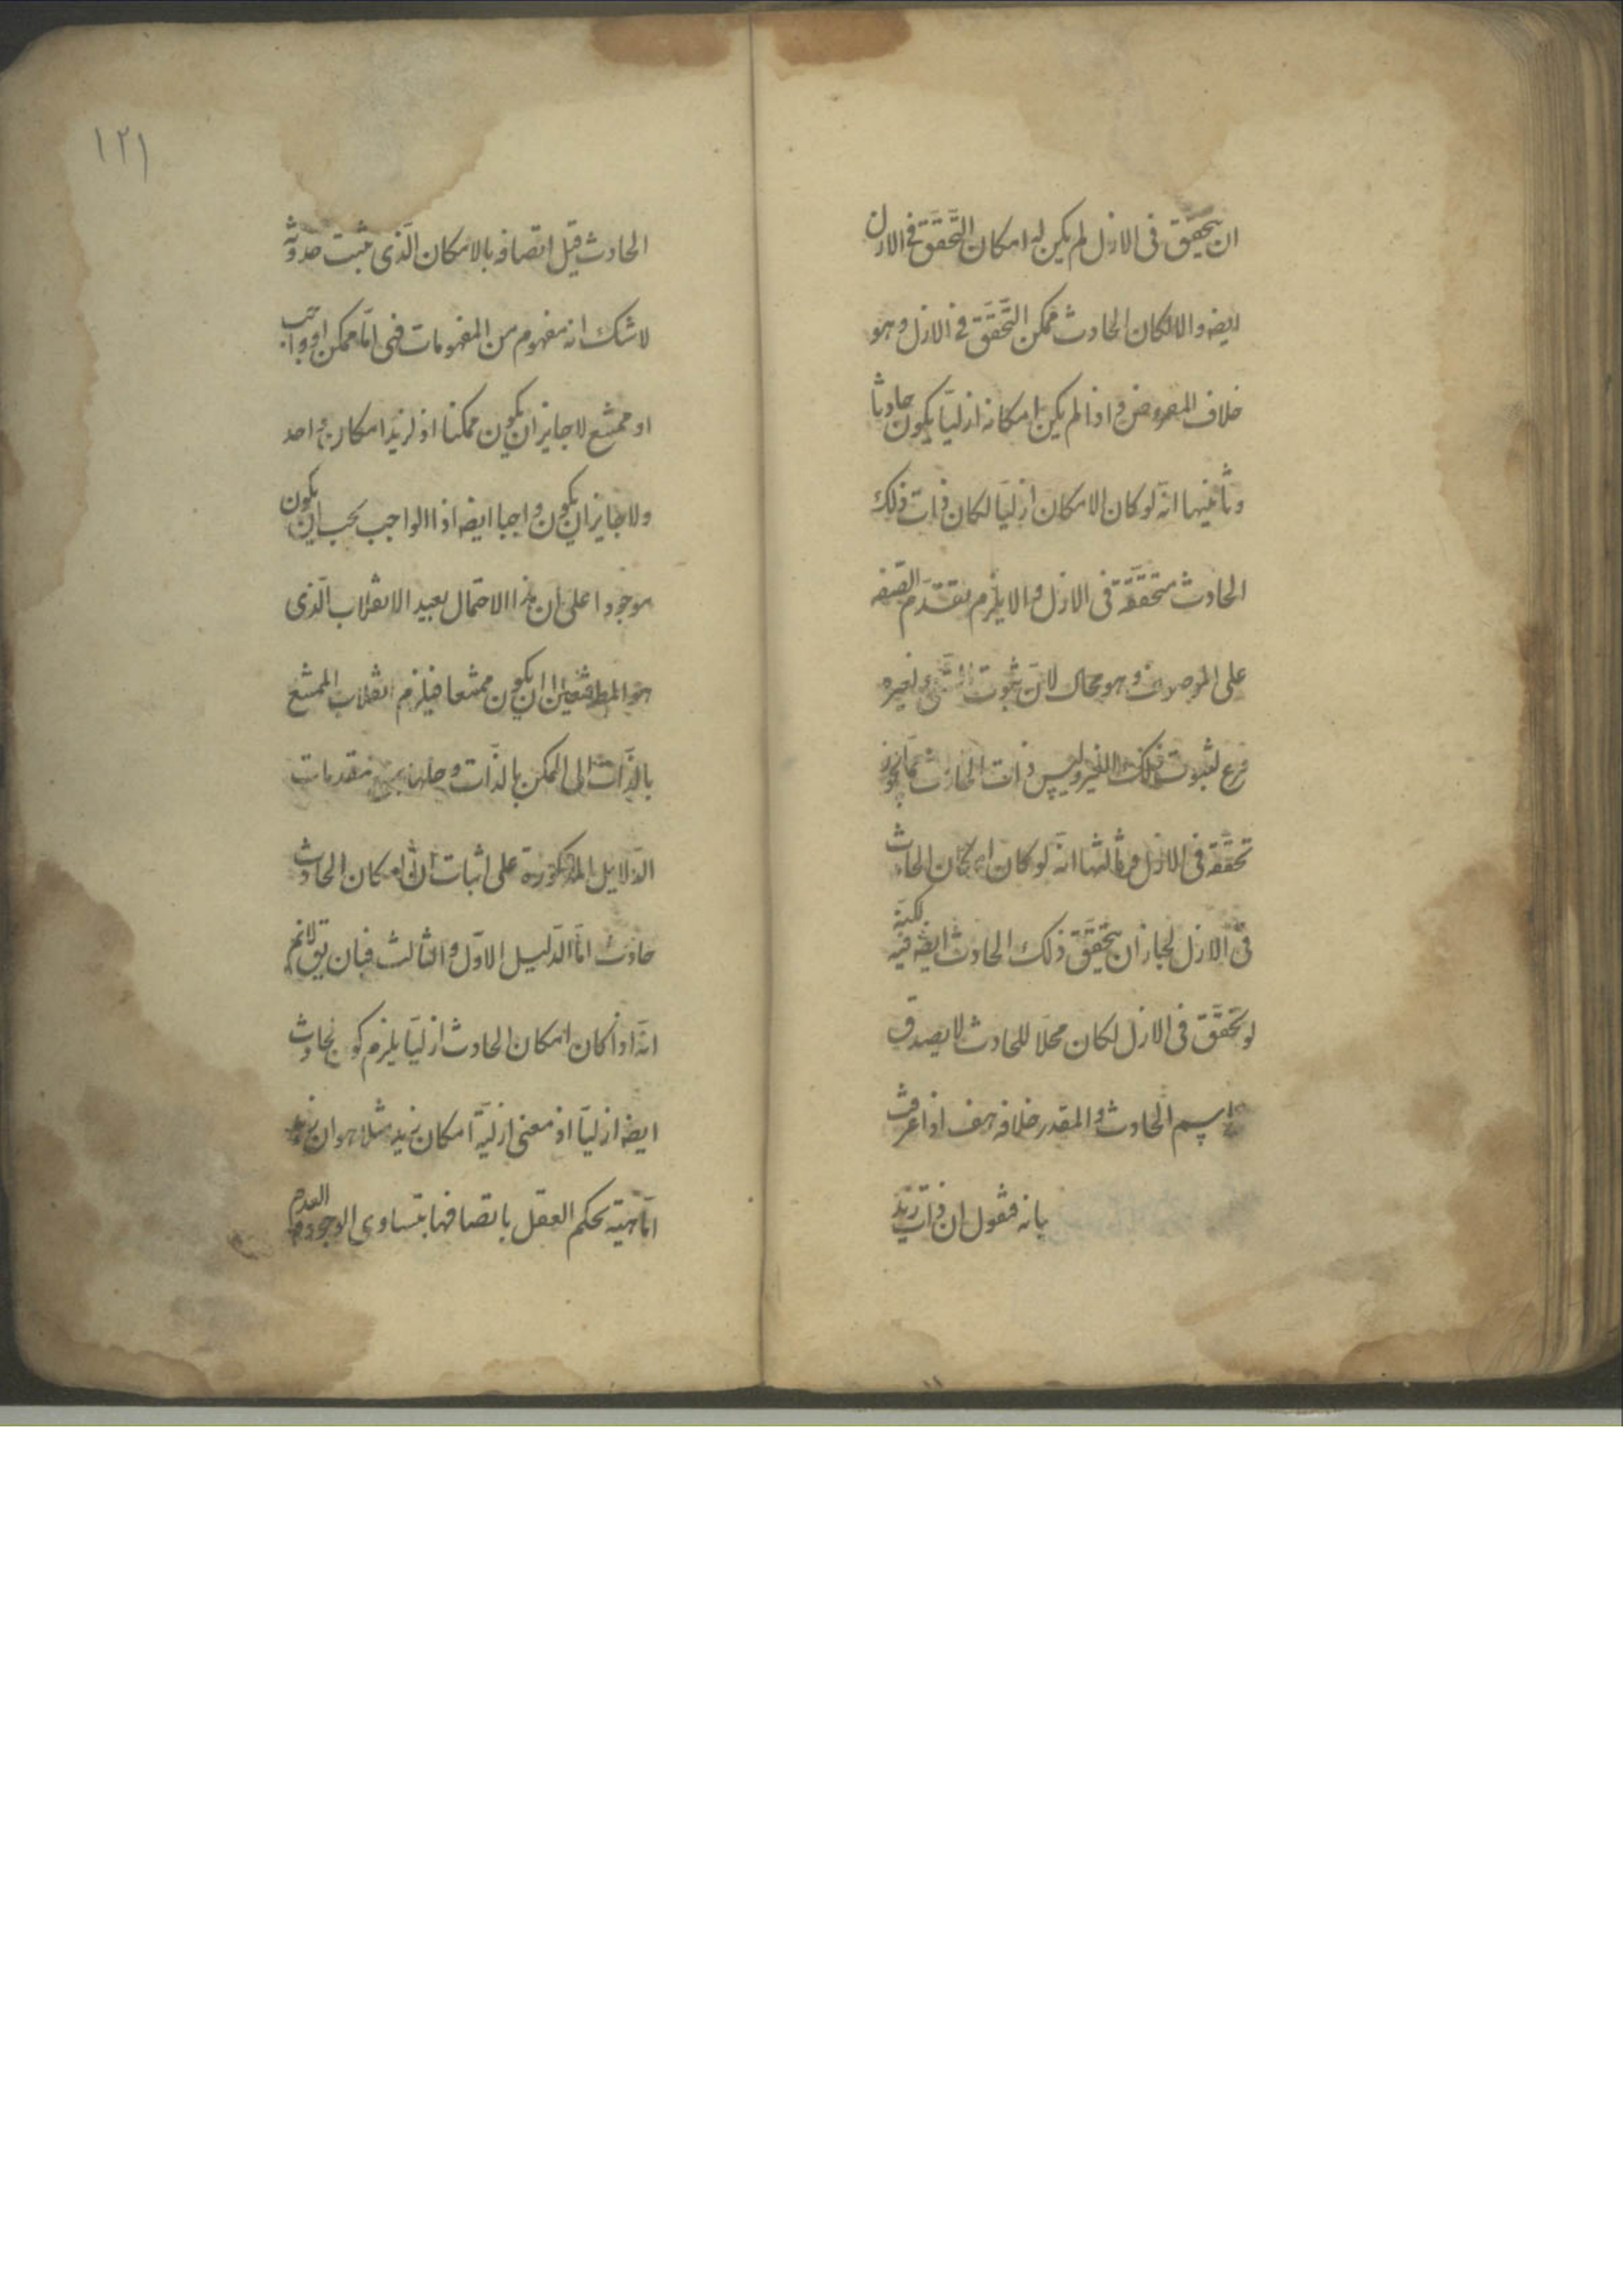 ان يتحقق فى الازل لم يكن له امكان التحقق فى الازل
ايضه والا لكان الحادث ممكن التحقق فى الازل وهو
خلاف المفروض واذا لم يكن امكانه ازليا يكون حادثا
وثانيها انه لو كان الامكان ازليا لكان ذات ذلك
الحادث متحققة فى الازل والا يلزم تقدم الصفه
على الموصوف وهو محال لان ثبوت الشىء لغيره
فرع لثبوت ذلك الغير وليس ذات الحادث مما يجوز
تحققه فى الازل وثالثها انه لو كان امكان الحادث
فى الازل لجاز ان يتحقق ذلك الحادث ايضه فيه لكنه
لو تحقق فى الازل لكان محلا للحادث لا يصدق
اسم الحادث والمقدر خلافه هف اذا عرفت
بانه فنقول ان ذات زيد
١٢١
الحادث قبل اتصافه بالامكان الذى يثبت حدوثه
لا شك انه مفهوم من المفهومات فهى اما ممكن او واجب
او ممتنع لا جايز ان يكون ممكنا اذ لزيد امكان واحد
ولا جايز ان يكون واجبا ايضه اذ الواجب يجب ان يكون
موجودا على ان هذا الاحتمال بعيد الانقلاب الذى
هو المط فتعين ان يكون ممتنعا فيلزم انقلاب الممتنع
بالذات الى الممكن بالذات وحلها بمنع مقدمات
الدلايل المذكورة على اثبات ان امكان الحادث
حادث اما الدليل الاول والثالث فبان يق لانم
انه اذا كان امكان الحادث ازليا يلزم كون الحادث
ايضه ازليا اذ معنى ازلية امكان زيد مثلا هو ان زيد
ماهيته يحكم العقل باتصافها بتساوى الوجود والعدم